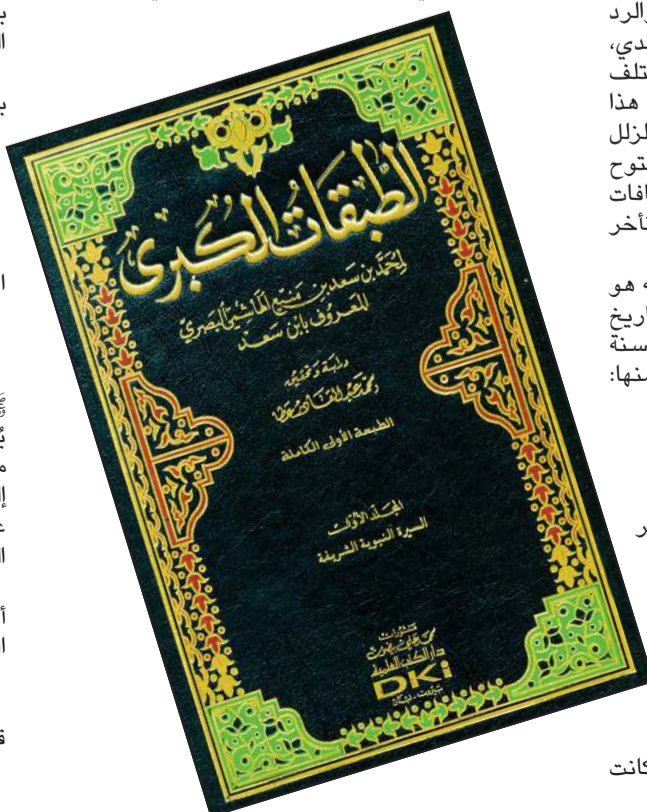 والرد
دي،
تلف
هذا
لزلل
توح
افات
تأخر
ه هو
اريخ
سنة
منها:
ر
كانت
الطبقات الكبرى
لمحمد بن سعد بن منيع الهاشمي البصري
المعروف بابن سعد
دراسة وتحقيق
محمد عبد القادر عطا
الطبعة الأولى الكاملة
المجلد الأول
السيرة النبوية الشريفة
منشورات
محمد علي بيضون
دار الكتب العلمية
DKi
بيروت - لبنان